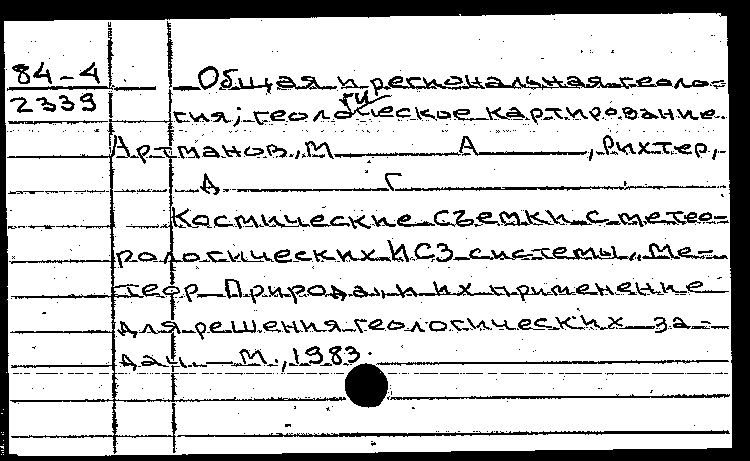 84-4 Общая и региональная геоло=
2339 гия; геологическое картирование.
Артманов, М А , Рихтер,
Д Г
Космические съемки с метео-
рологических ИСЗ системы „Ме-
теор Природа„ и их применение
для решения геологических за-
дач. — М., 1983.